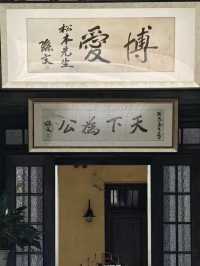 博愛
松本先生
孫文
天下為公
孫文